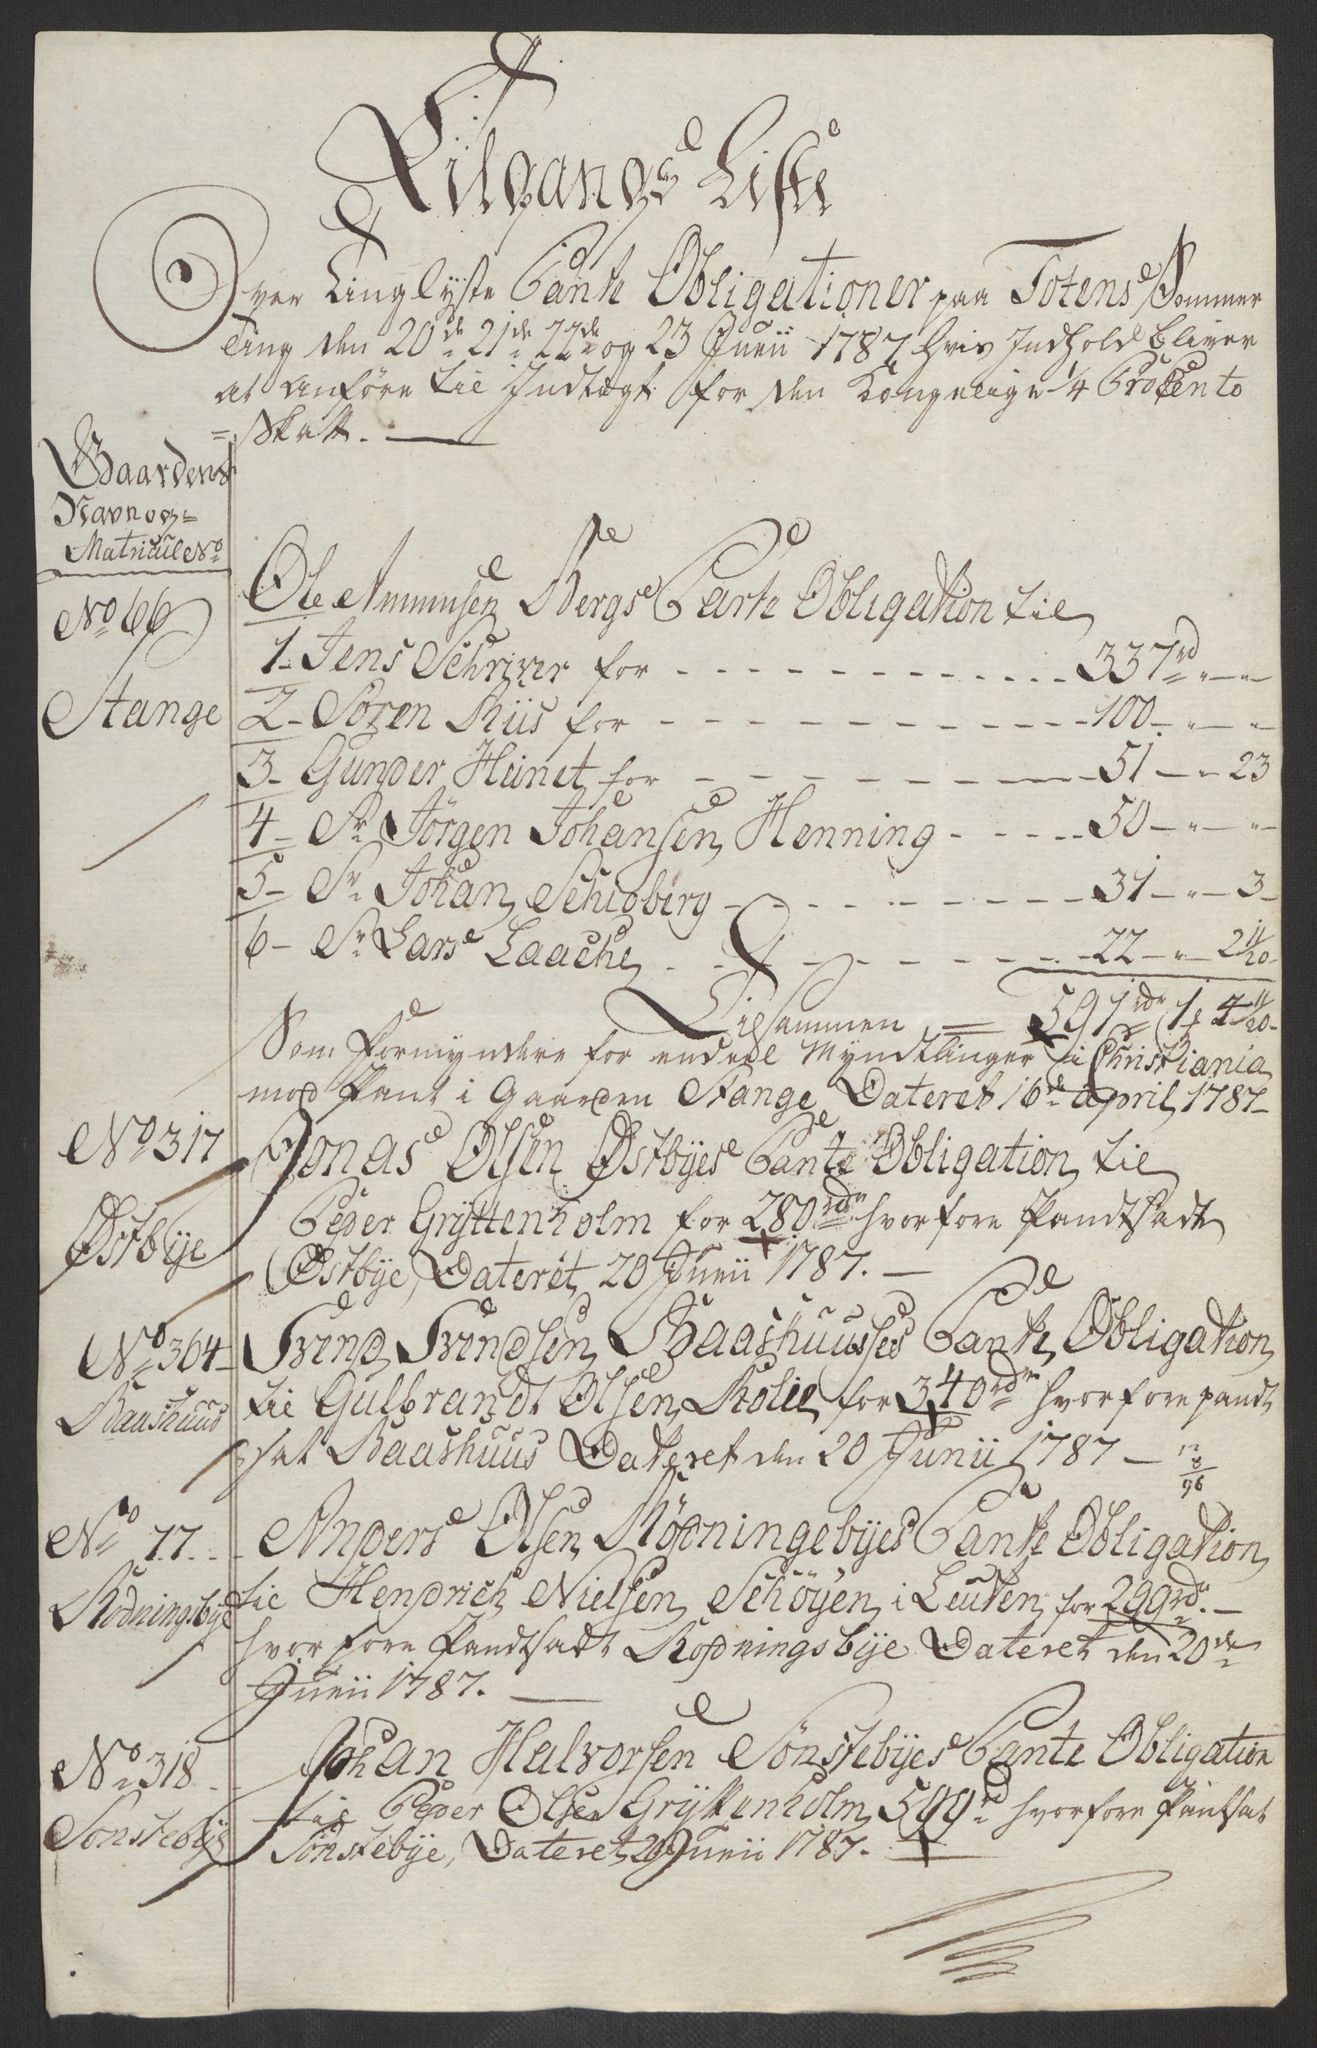 Tilgangs Liste
Over Tinglyste Pante Obligationer paa Totens Sommer
Ting den 20de 21de 22de og 23 Junii 1787 hvis Indhold bliver
at anføre til Indtægt for den Kongelige 1/4 Procento
Skatt.
Gaardens
Navn og
Matricul No
Ole Amunsen Bergs Pante Obligation til
No 66
1. Jens Schriver for 337 rd " "
Stange
2 Søren Riis for 100 " "
3 Gunder Hunet for 51 " 23
4 Sr Jörgen Johansen Henning 50 " "
5 Sr Johan Schioberg 31 " 3
6 Sr Lars Laache 22 " 2 11/20
Tilsammen 591 rdr 1 4 11/20
Som Formyndere for endeel Myndtlinger i Christiania
mod Pant i Gaarden Stange Dateret 16de April 1787
No 317
Jonas Olsen Østbyes Pante Obligation til
Østbye
Peder Gryttenholm for 280 rdr hvorfore Pandtsadt
Østbye, Dateret 20 Junii 1787.
No 364
Svend Svendsen Baashuuses Pante Obligation
Baashuus
til Gulbrandt Olsen Kolie for 340 rdr hvorfore pandt
sat Baashuus Dateret den 20 Junii 1787
12
8
96
No 77
Anders Olsen Rödningebyes Pante Obligation
Rödningsbye
til Hendrich Nielsen Schöyen i Leuten for 299 rd.
hvorfore Pandtsadt Rödningsbye Dateret den 20de
Junii 1787.
No 318
Johan Halvorsen Sönstebyes Pante Obligation
Sönstebye
til Peder Olsen Gryttenholm 599 rd hvorfore Pantsat
Sönstebye, Dateret 20 Junii 1787.